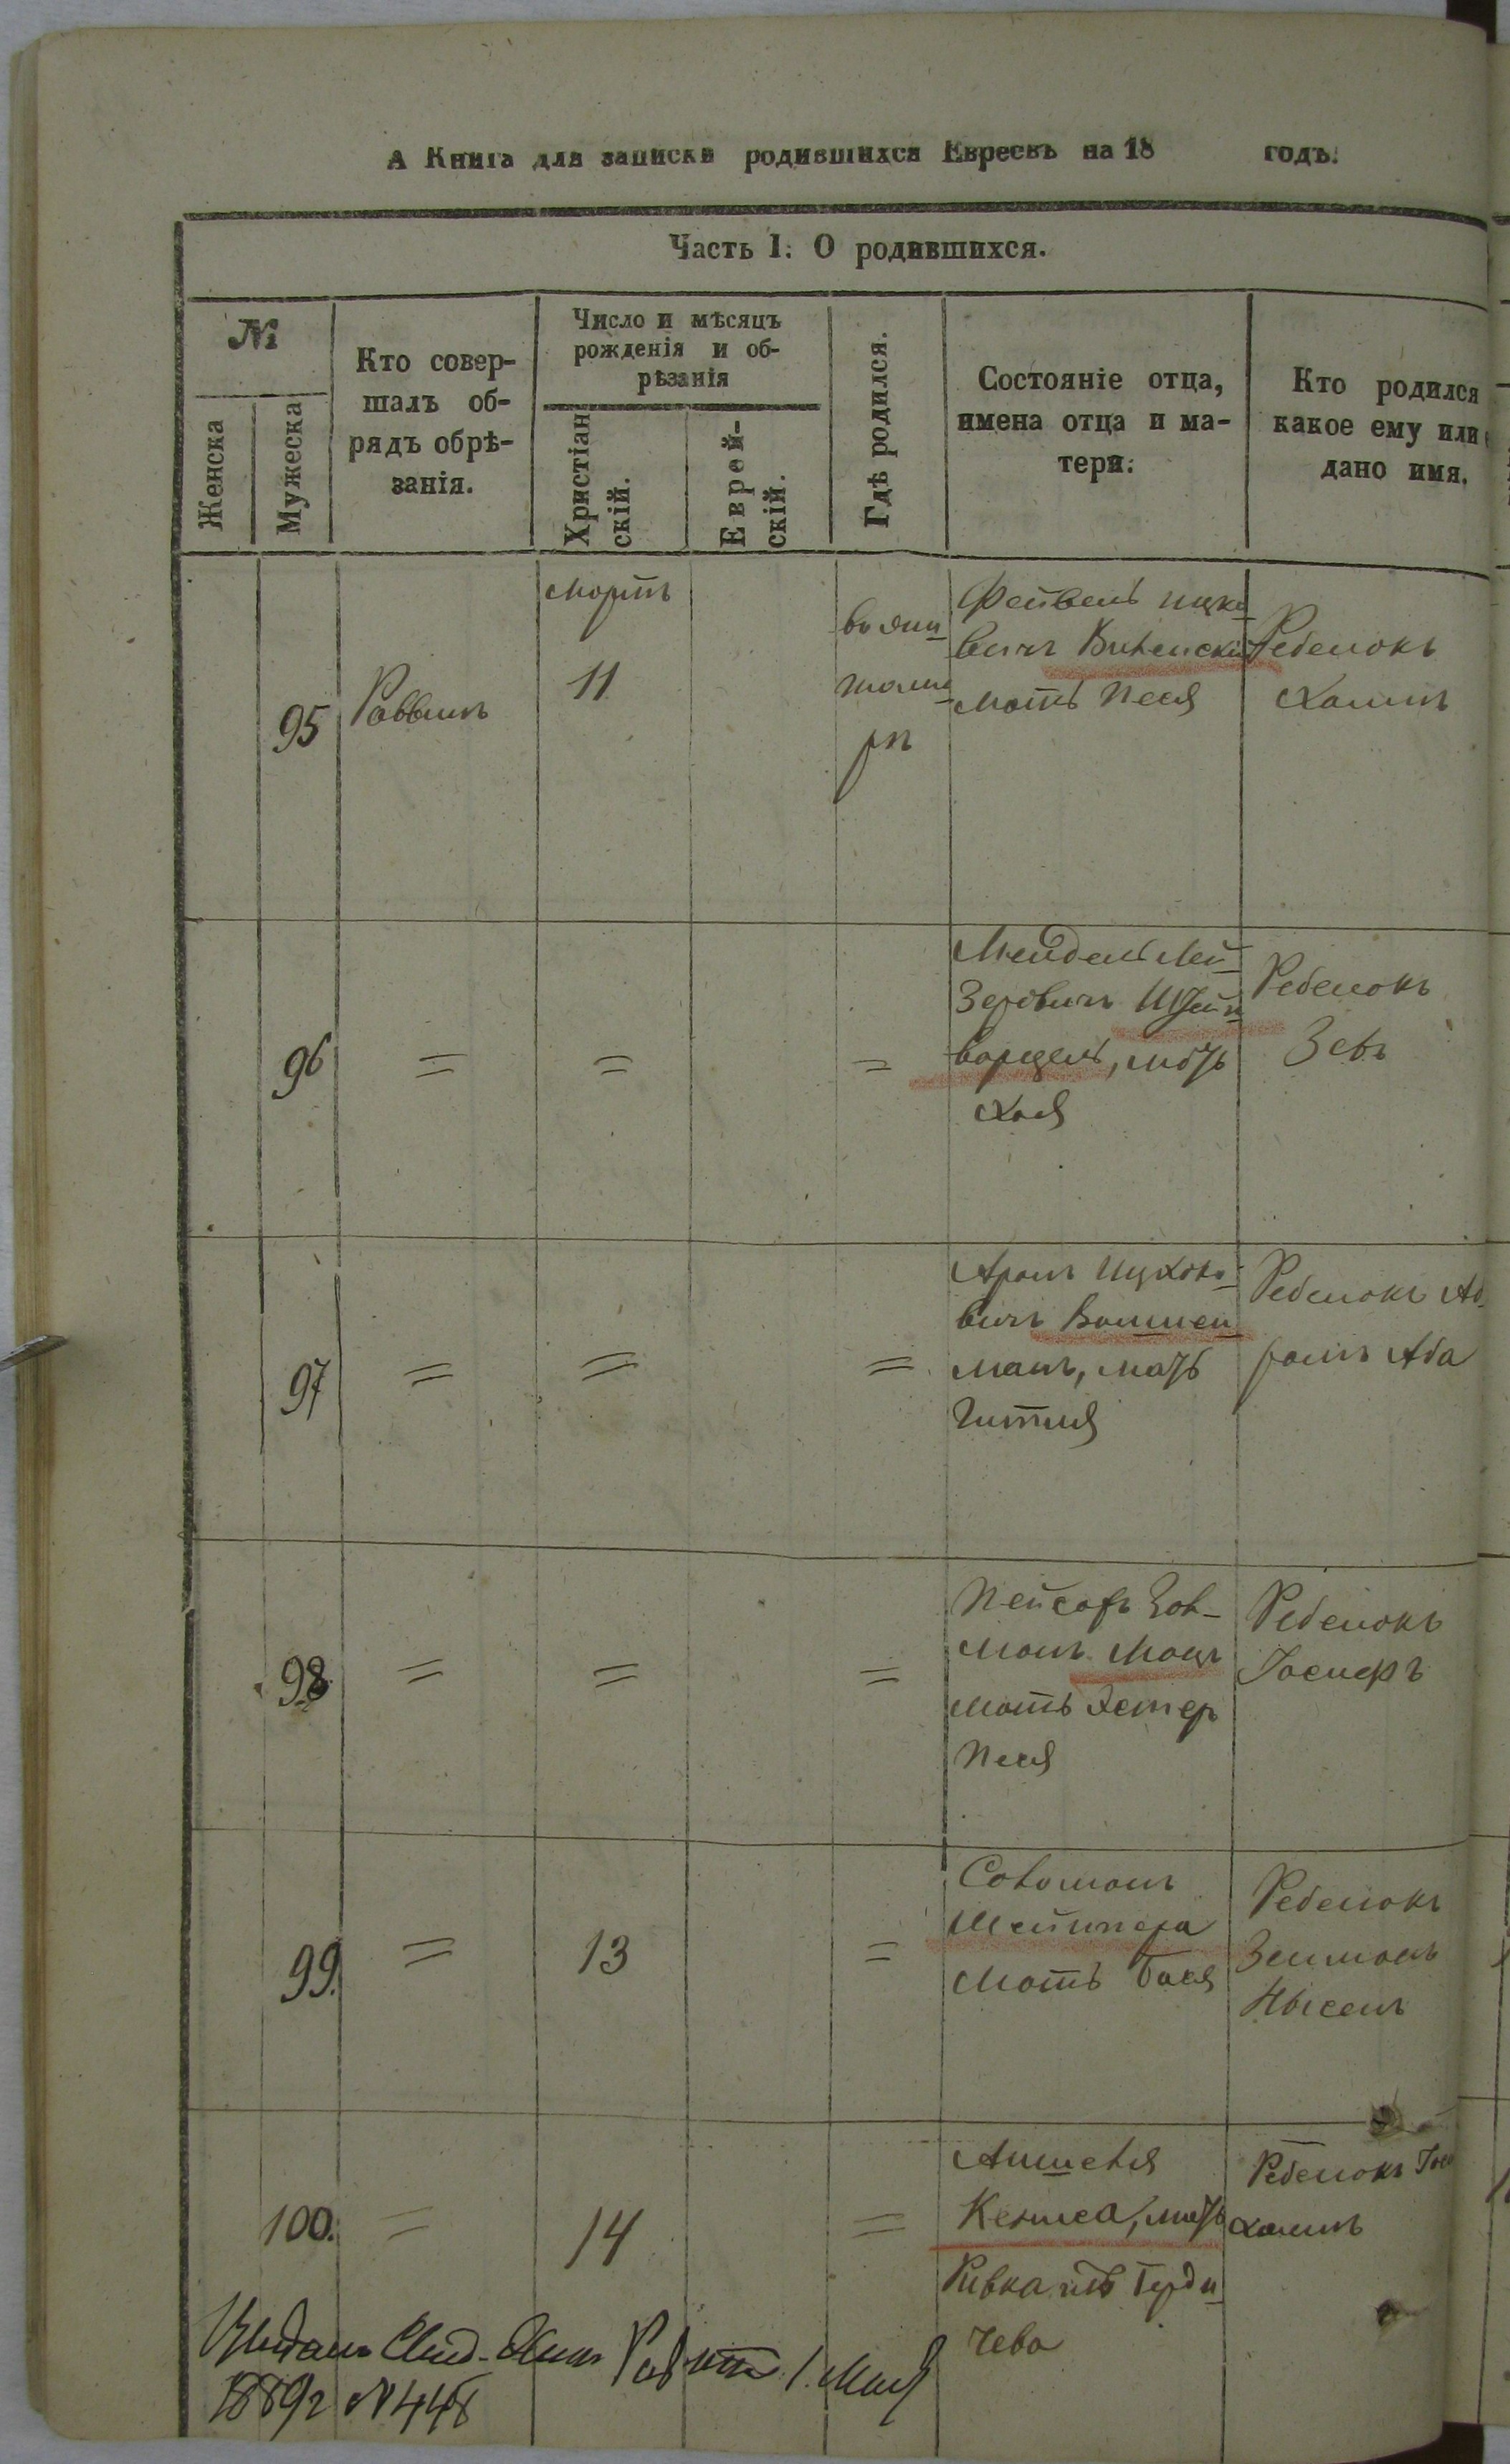 А Книга для записки родившихся Евреевъ на 18 годъ.
Часть I. О родившихся.
№
Женска
Мужеска
Кто совер-
шалъ об-
рядъ обрѣ-
занія.
Число и мѣсяцъ
рожденія и об-
рѣзанія
Христіан
скій.
Еврей-
скій.
Гдѣ родился.
Состояніе отца,
имена отца и ма-
тери.
Кто родился
какое ему или
дано имя.
95
Раввинъ
Мартъ
11
въ Жи
томи
рѣ
Фейвель Ицко
вичъ Виленскій
мать Песя
Ребенокъ
Хаимъ
96
=
=
=
Мендель Лей
зеровичъ
варцель, мать
Хая
Ребенокъ
Зевъ
97
=
=
=
Аронъ Ицхоко
вичъ Вайнен
манъ, мать
Гитля
Ребенокъ Аб
рамъ Аба
98
=
=
=
Пейсахъ Зол-
манъ Мацъ
мать Эстер
Песя
Ребенокъ
Іосифъ
99.
=
13
=
Соломонъ
мать Бася
Ребенокъ
Зельманъ
Нысенъ
100.
=
14
=
Аншеля
мать
Ривка изъ Берди
чева
Ребенокъ
Хаимъ
1889 г № 448